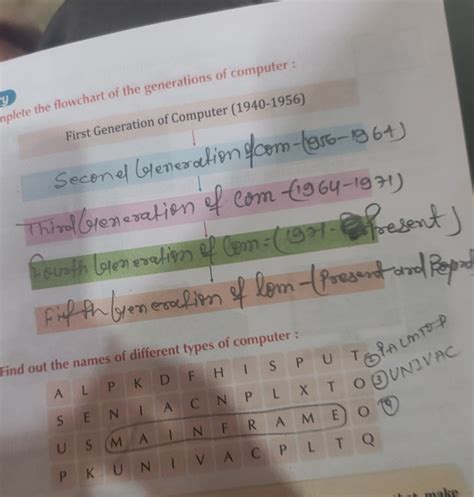 mplete the flowchart of the generations of computer :
First Generation of Computer (1940-1956)
Second Generation of com-(1956-1964)
Third Generation of com-(1964-1971)
Fourth Generation of Com:-(1971- Present)
Fifth Generation of Com-(Present and
Find out the names of different types of computer :
A L P K D F H I S P U T
S E N I A C N P L X T O
U S M A I N F R A M E O
P K U N I V A C P L T Q
PALMTOP
UNIVAC
that make